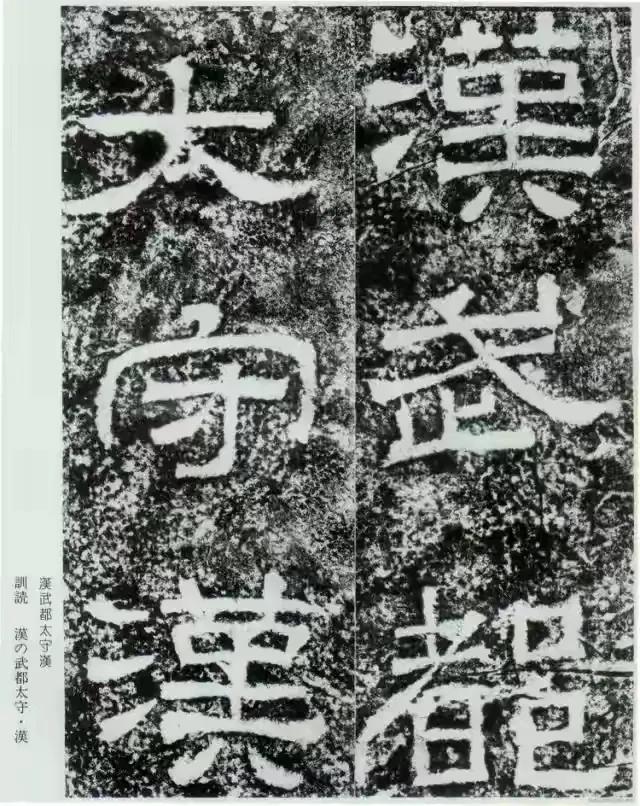 漢武都
太守漢
漢武都太守漢
訓読　漢の武都太守・漢